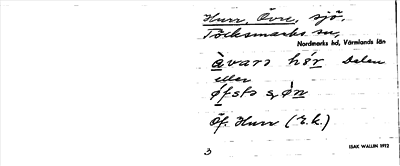 Hurr, Övre, sjö,
Töcksmarks sn,
Nordmarks hd, Värmlands län
àvarə hór Delen
eller
øfstə sjøn
Öf. Hurr (r.k.)
3 ISAK WALLIN 1912